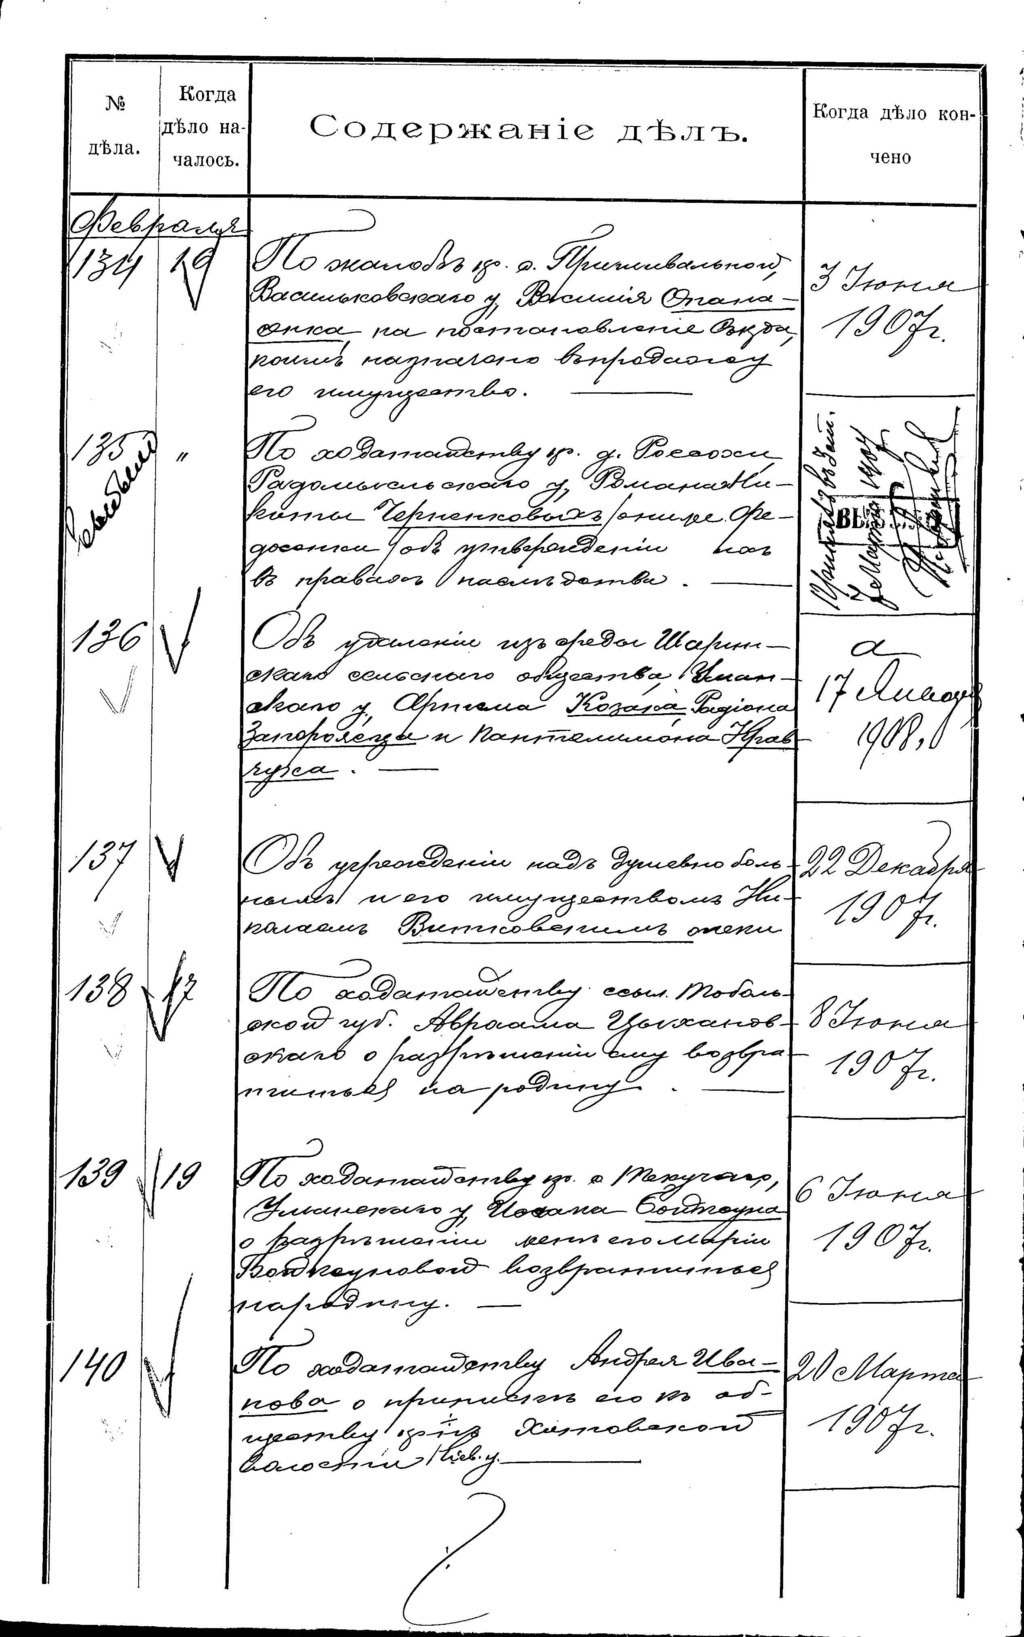 № дѣла.
Когда дѣло на-
чалось.
Содержаніе дѣлъ.
Когда дѣло кон-
чено
Февраля
134 19 По жалобѣ кр. с. Пришивальной,
Васильковскаго у, Василія Опана-
сенка на постановленіе Съѣзда,
коимъ назначено въ продажу
его имущество.
3 Іюня
1907г.
135 " По ходатайству кр. д. Рассохи,
Радомысльскаго у, Романа и Ни-
киты Черненковыхъ /они же Фе-
досенки/ объ утвержденіи ихъ
въ правахъ наслѣдства.
Марта 1907
136 Объ удаленіи изъ среды Шарин-
скаго сельскаго общества, Уман-
скаго у, Артема Козака, Радіона
Запорожеца и Пантелимона Крав-
чука.
17 Января
1908
137 Объ учрежденіи надъ душевно боль-
нымъ и его имуществомъ Ни-
колаемъ Витковскимъ опеки
22 Декабря
1907г.
138 17 По ходатайству ссыл. Тоболь-
ской губ. Авраама Цыханов-
скаго о разрѣшеніи ему возвра-
титься на родину.
8 Іюня
1907г.
139 19 По ходатайству кр. с. Текучаго,
Уманскаго у,
о разрѣшеніи женѣ его Маріи
возвратиться
на родину.
6 Іюня
1907г.
140 По ходатайству Андрея Ива-
нова о припискѣ его къ об-
ществу кр-нъ Хотовской
волости Кіев. у.
20 Марта
1907г.